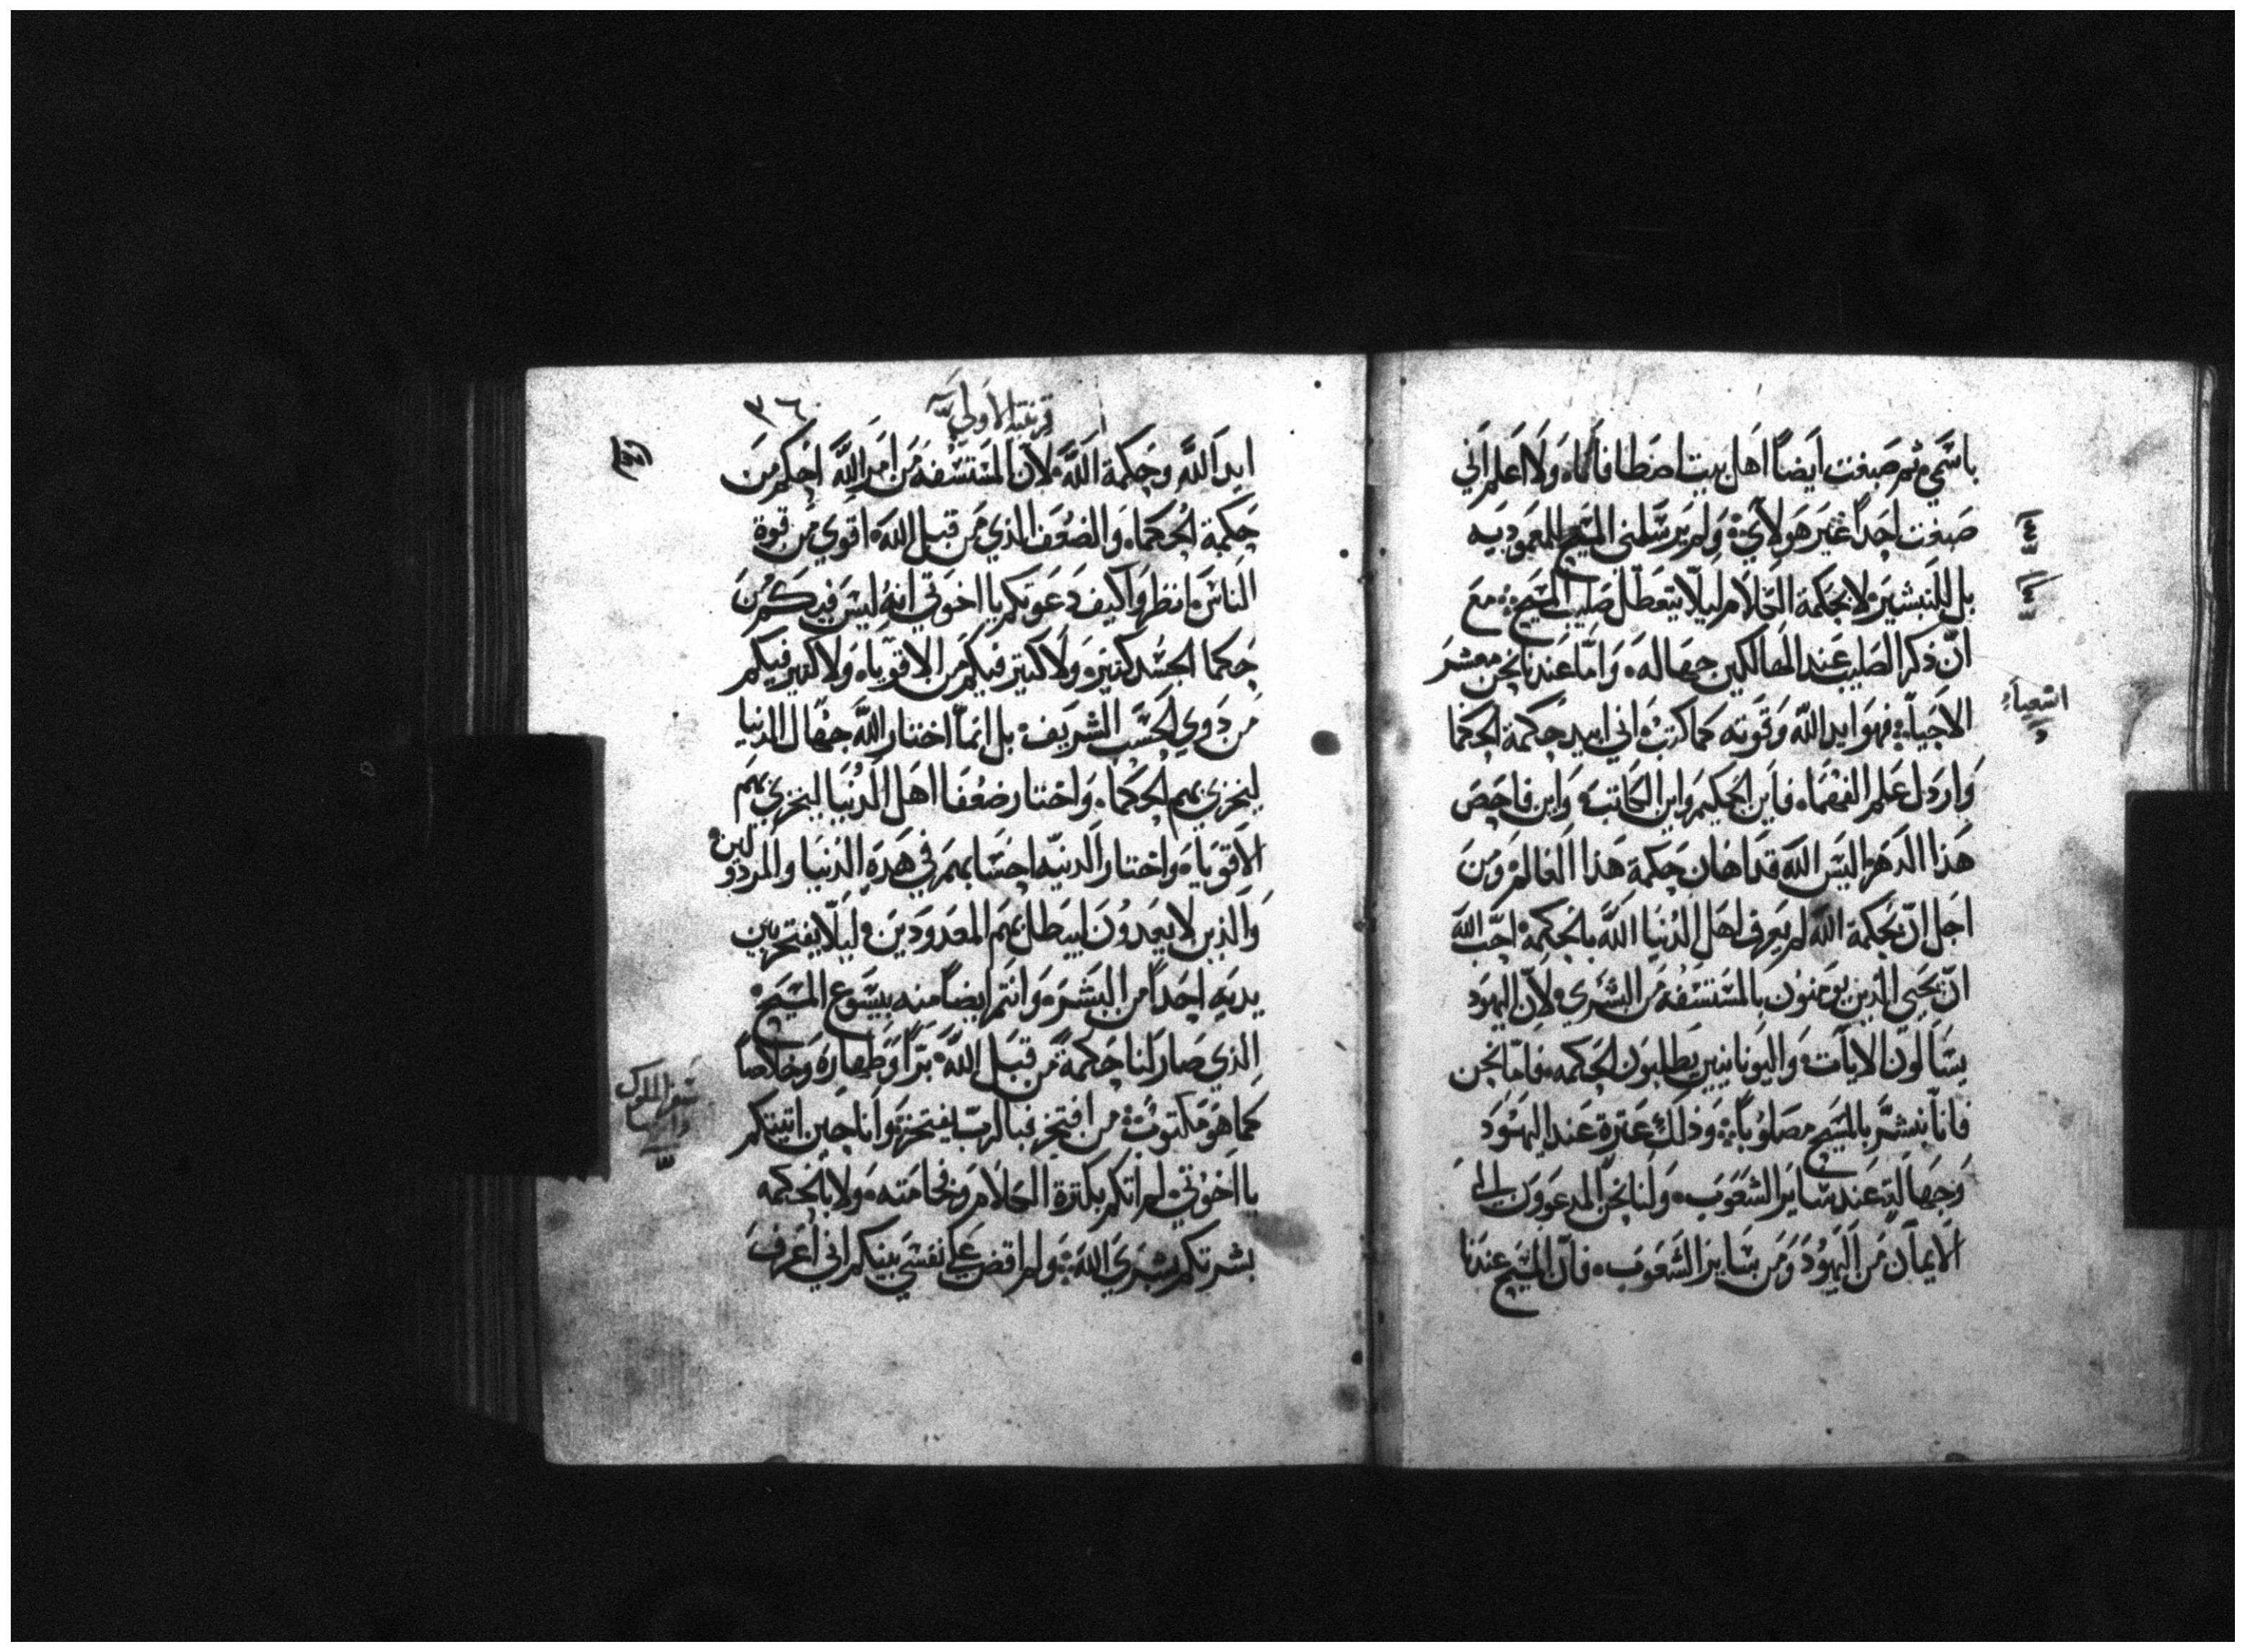 باسمي ثم صبغت ايضاً اهل بيت اصطافانا ولا اعلم اني
صبغت احداً غير هولاي ولم يرسلني المسيح للمعموديه
بل للتبشير لا بحكمة الكلام ليلا يتعطل صليب المسيح مع
ان ذكر الصليب عند الهالكين جهاله واما عندنا نحن معشر
الاحيا فهو ايد الله وقوته كما كتب اني ابيد حكمة الحكما
وارذل علم الفهما فاين الحكيم واين الكاتب واين فاحص
هذا الدهر اليس الله قد اهان حكمة هذا العالم ومن
اجل ان بحكمة الله لم يعرف اهل الدنيا الله بالحكمة احب الله
ان يحيي الذين يومنون بالمستسفه من البشري لان اليهود
يسالون الايات واليونانيين يطلبون الحكمه فاما نحن
فانا نبشر بالمسيح مصلوباً وذلك عترة عند اليهود
وجهالة عند ساير الشعوب ولنا نحن المدعوون الي
الايمان من اليهود ومن ساير الشعوب فان المسيح عندنا
اشعياء
قرنتيه الاولي
٣٦
ايد الله وحكمة الله لان المستسفه من امر الله احكم من
حكمة الحكما والضعف الذي من قبل الله اقوي من قوة
الناس انظروا كيف دعوتكم يا اخوتي انه ليس فيكم من
حكما الجسد كتير ولا كتير فيكم من الاقويا ولا كتير فيكم
من دوي الحسب الشريف بل انما اختار الله جهال الدنيا
ليخزي بهم الحكما واختار ضعفا اهل الدنيا ليخزي بهم
الاقويا واختار الدنيه احسابهم في هده الدنيا والمردولين
والذين لا يعدون ليبطل بهم المعدودين ليلا يفتخر بين
يديه احداً من البشر وانتم ايضاً منه بيسوع المسيح
الذي صار لنا حكمة من قبل الله براً وطهارة وخلاصاً
كما هو مكتوب من افتخر فبالرب يفتخر وانا حين اتيتكم
يا اخوتي لم اتكم بكترة الكلام وفخامته ولا بالحكمه
بشرتكم بشري الله ولم اقض علي نفسي بينكم اني اعرف
سفر الملوك